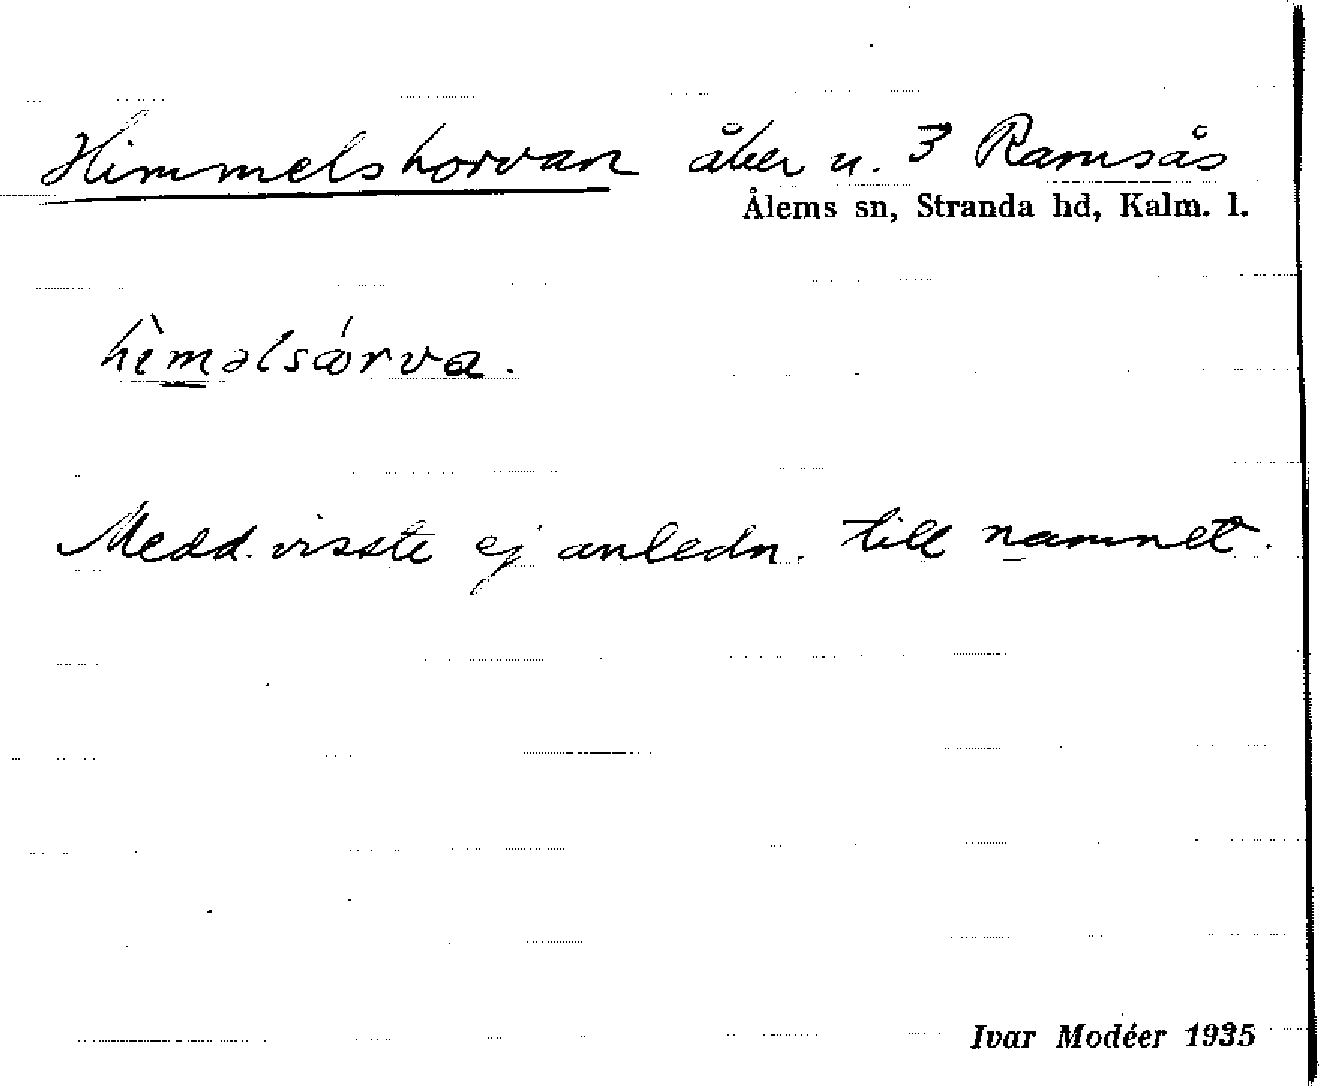 Himmelshorvan åker u. 3 Ramsås
Ålems sn, Stranda hd, Kalm. l.
hìməlsórva.
Medd. visste ej anledn. till namnet.
Ivar Modéer 1935